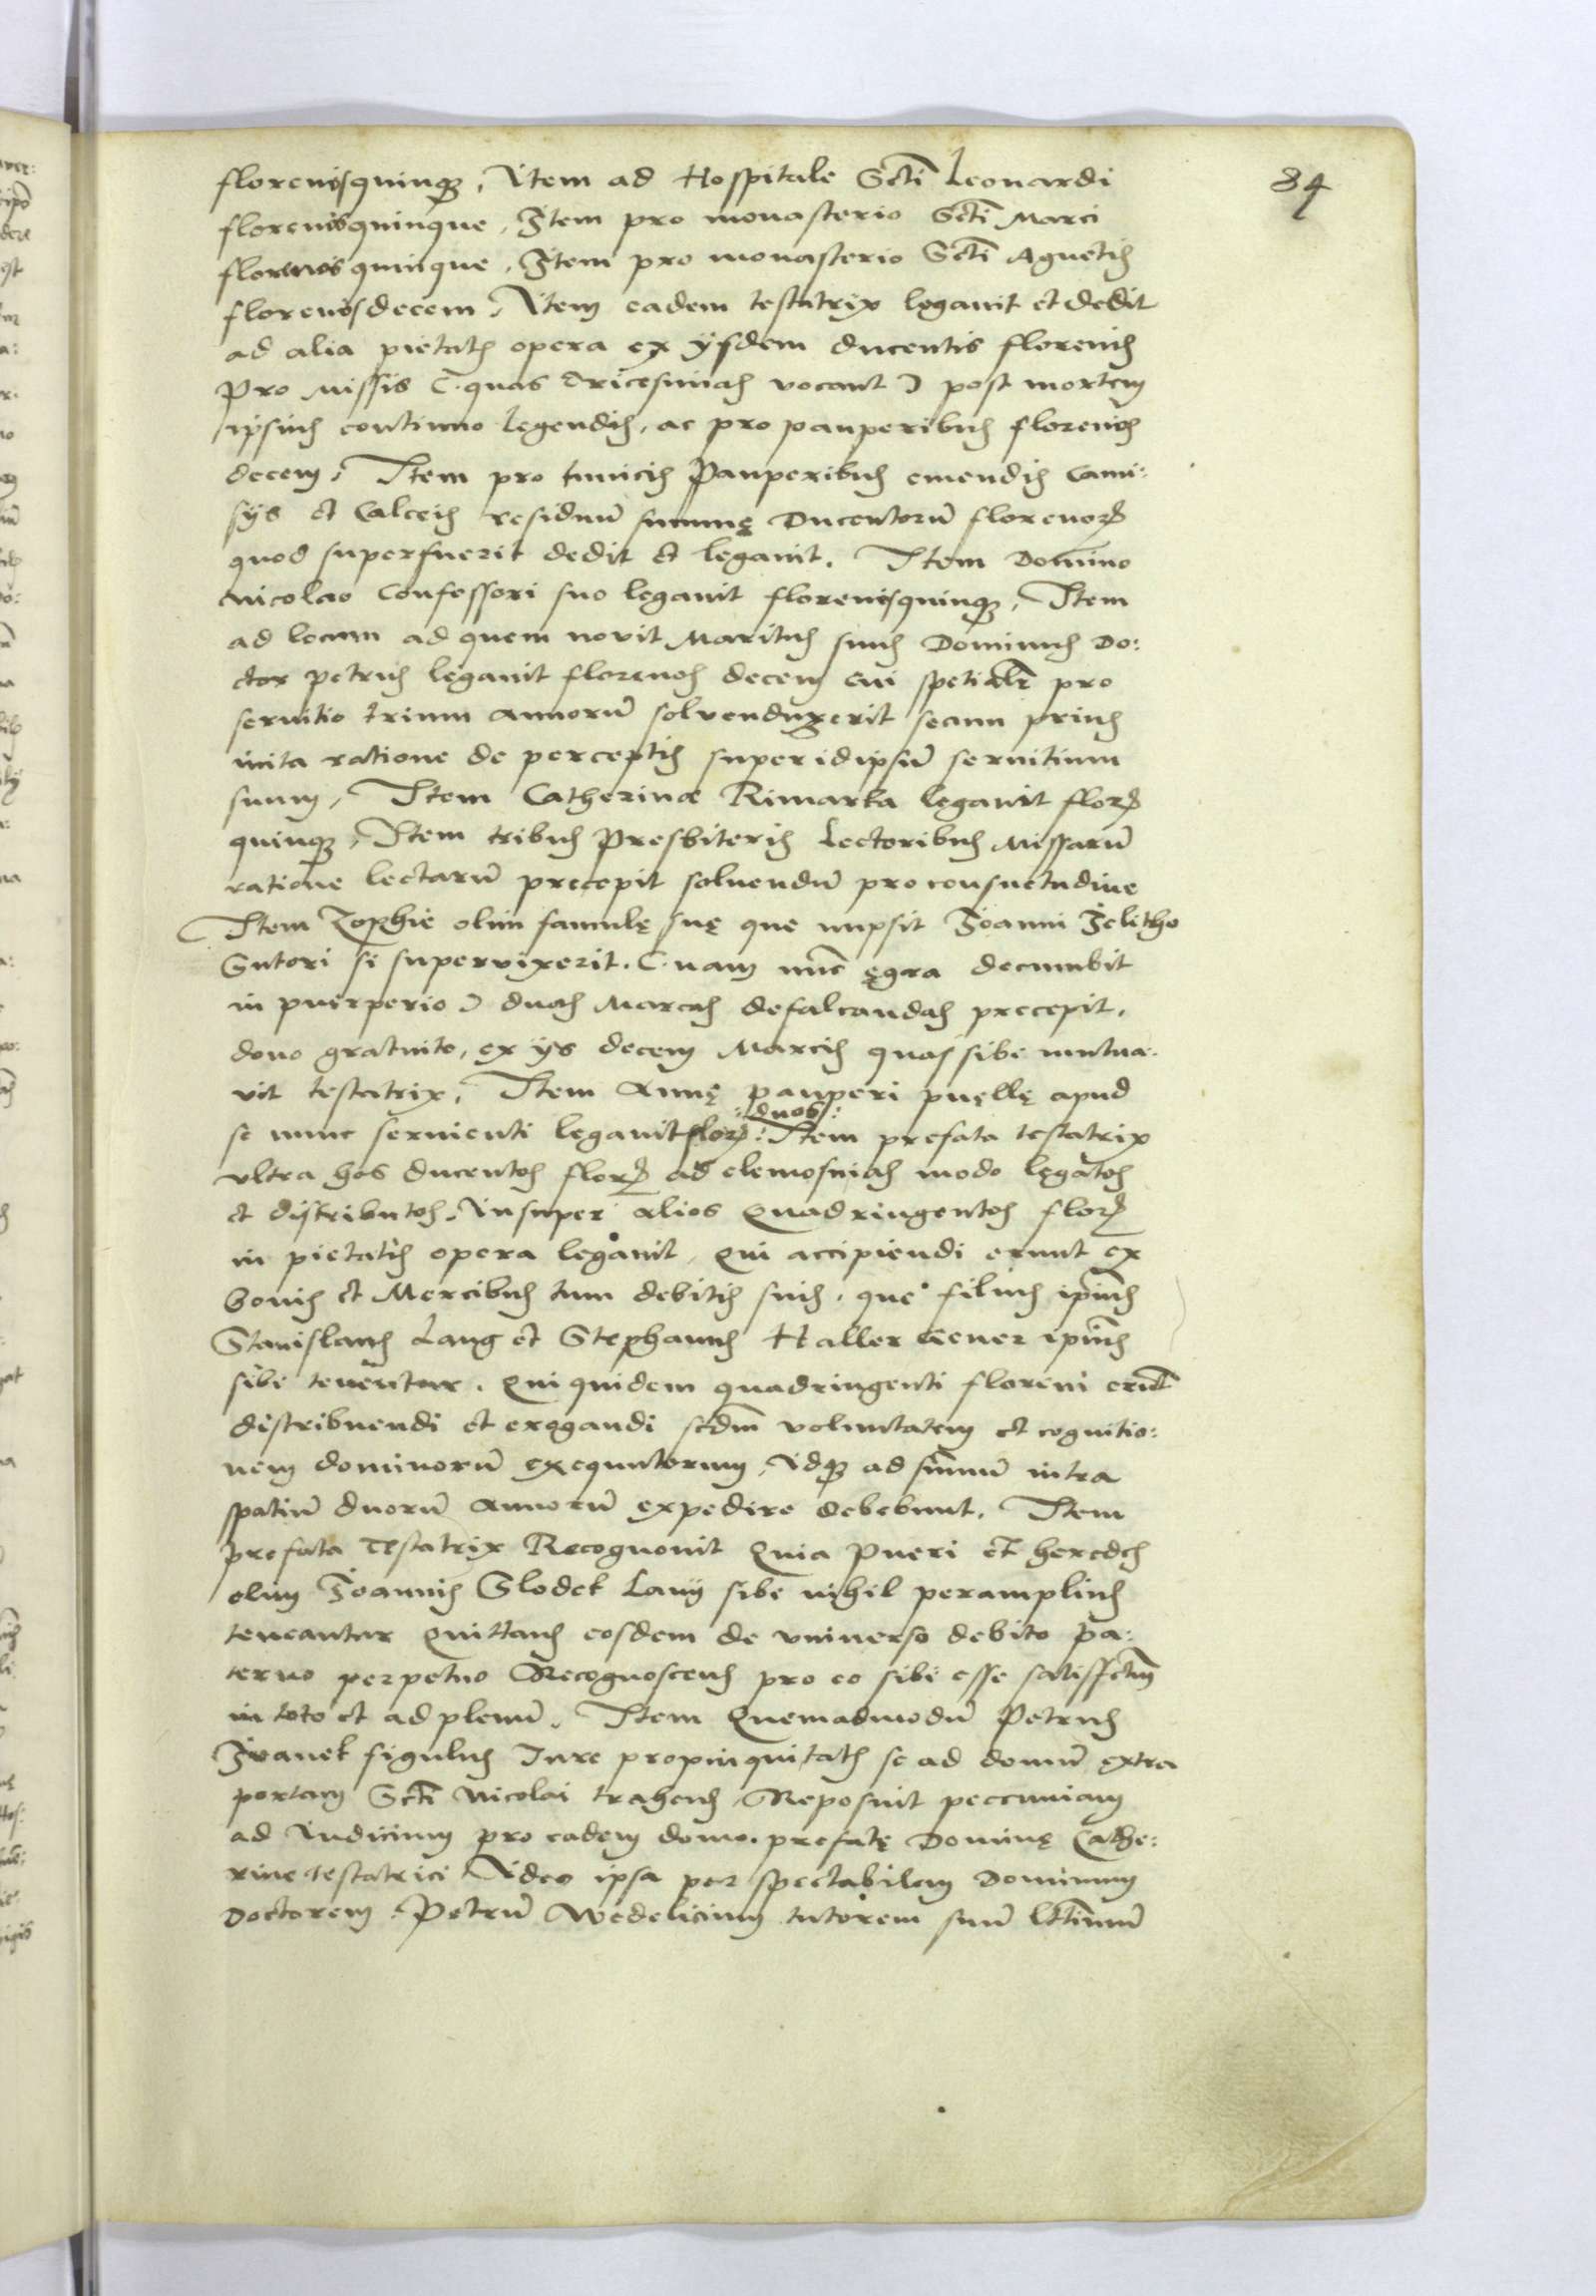 84
florenos quinq3, Item ad Hospitale Scti Leonardi
florenos quinque, Item pro monasterio Scti Marci
florenos quinque, Item pro monasterio Scti Agnetis
florenos decem, Item eadem testatrix legavit et dedit
ad alia pietatis opera ex ijsdem ducentis florenis
Pro missis (quas tricesimas vocant) post mortem
ipsius continuo legendis, ac pro pauperibus florenos
decem, Item pro tunicis Pauperibus emendis Cami:
sijs et Calceis residuū summę Ducentorū florenor3
quod superfuerit dedit et legavit. Item Domino
Nicolao Confessori suo legavit florenos quinq3, Item
ad locum ad quem novit Maritus suus Dominus Do:
ctor Petrus legavit florenos decem
servitio trium annorū solvendum erit secum prius
inita ratione de perceptis super idipsū servitium
suum, Item Catherinæ Rimarka legavit flor3
quinq3, Item tribus Presbiteris Lectoribus Missarū
ratione lectarū precepit solvendū pro consuetudine
Item Zophie olim famulę suę que nupsit Joanni Jelitho
Sutori si supervixerit. (nam nūc ęgra decumbit
in puerperio) duas Marcas defalcandas precepit,
dono gratuito, ex ijs decem Marcis quas sibi mutua:
vit testatrix, Item Annę pauperi puellę apud
:duos:
se nunc servienti legavit flor3: Item prefata testatrix
ultra hos ducentos flor3 ad elemosinas modo legatos
et distributos, insuper alios Quadringentos flor3
in pietatis opera legavit, Qui accipiendi erunt ex
bonis et Mercibus tum debitis suis, que filius ipsius
Stanislaus Lang et Stephanus Haller Gener ipsius
sibi tenentur. Qui quidem quadringenti floreni erūt
distribuendi et erogandi scdm voluntatem et cognitio:
nem dominorū exequutorum, Idq3 ad summū intra
spatiū duorū annorū expedire debebunt. Item
prefata Testatrix Recognovit Quia Pueri et heredes
olim Joannis Slodek Lanij sibi nihil peramplius
teneantur Quittans eosdem de universo debito pa:
terno perpetuo Recognoscens pro eo sibi esse satisfctm
in toto et ad plenū, Item Quemadmodū Petrus
Jvanek figulus Jure propinquitatis se ad domū extra
portam Scti Nicolai trahens, Reposuit peccuniam
ad Iudicium pro eadem domo, prefatę Dominę Cathe:
rine testatrici Ideo ipsa per spectabilem Dominum
Doctorem Petrū Wedelicium tutorem suū lttimū